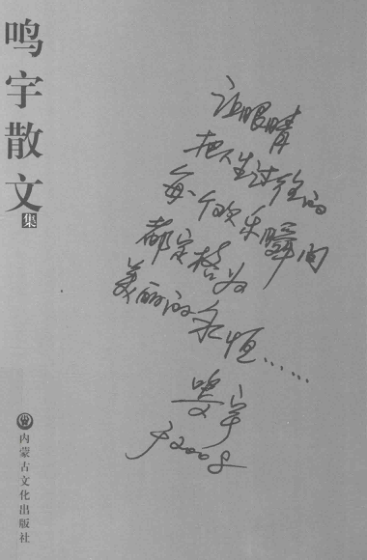 鸣宇散文集
让眼睛
把人生过往的
每个欢乐瞬间
都定格为
美丽的永恒……
鸣宇
于2008
内蒙古文化出版社